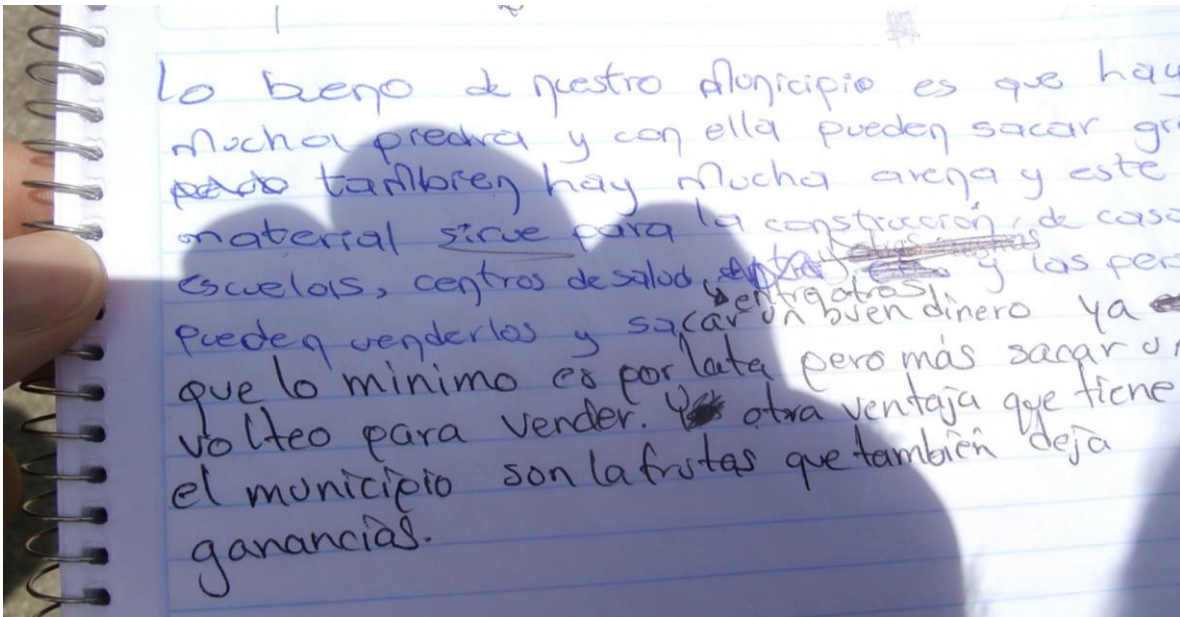 Lo bueno de nuestro Municipio es que hay
Mucha piedra y con ella pueden sacar
tambien hay Mucha arena y este
material sirve para la construcción, de
escuelas, centros de salud, y las
y entre otros
pueden venderlos y sacar un buen dinero ya
que lo minimo es por lata pero más sacar
volteo para vender. Y otra ventaja que tiene
el municipio son la frutas que también deja
ganancias.